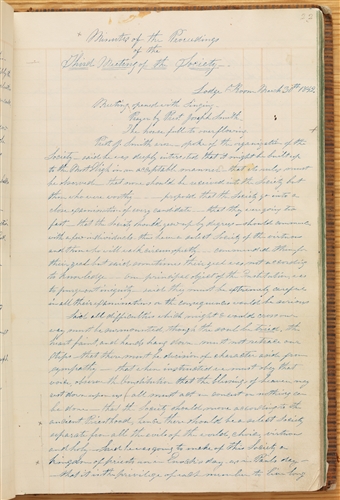 22
Minutes of the Proceedings
of the
Third Meeting of the Society
Lodge Room March 30th 1842.
Meeting opened with Singing.
Prayer by Prest Joseph Smith,
The house full to overflowing.
Prest. J. Smith arose, spoke of the organization of the
Society—said he was deeply interested that it might be built up
to the Most High in an acceptable manner—that its rules must
be observed—that none should be received into the Society but
those who were worthy—propos'd that the Society go into a
close examination of every candidate—that they were going too
fast—that the Society should grow up by degrees—should commence
with a few individuals—thus have a select Society of the virtuous
and those who will walk circumspectly—commended them for
their zeal but said sometimes their zeal was not according
to knowledge—One principal object of the Institution, was
to purge out iniquity—said they must be extremely careful
in all their examinations or the consequences would be serious
Said all difficulties which might & would cross our
way must be surmounted, though the soul be tried, the
heart faint, and hands hang down—must not retrace our
steps—that there must be decision of character aside from
sympathy—that when instructed we must obey that
voice, observe the Constitution that the blessings of heaven may
rest down upon us—all must act in concert or nothing can
be done—that the Society should move according to the
ancient Priesthood, hence there should be a select Society
separate from all the evils of the world, choice, virtuous
and holy—Said he was going to make of this Society a
kingdom of priests as in Enoch's day—as in Paul's day
—that it is the privilege of each member to live long